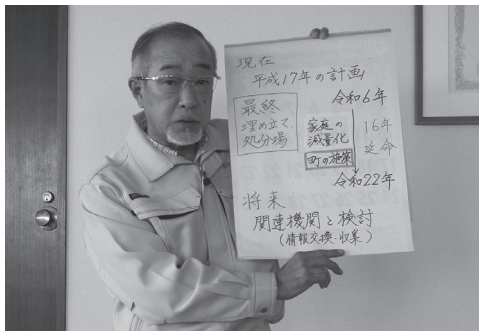 現在
平成17年の計画
最終
埋め立て
処分場
家庭の
減量化
町の施策
令和6年
16年
延命
令和22年
将来
関連機関と検討
(情報交換・収集)